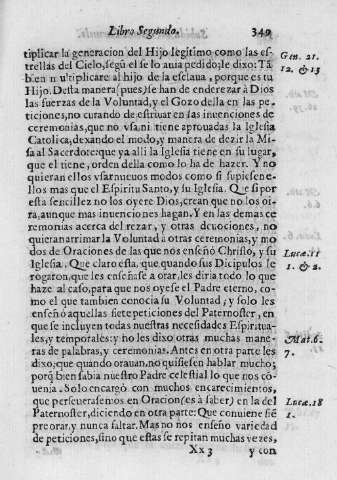 Libro Segundo. 349
tiplicar la generacion del Hijo legitimo como las es-
trellas del Cielo, segũ el se lo auia pedido; le dixo: Tã
bien multiplicare al hijo de la esclaua, porque es tu
Hijo. Desta manera (pues) se han de enderezar à Dios
las fuerzas de la Voluntad, y el Gozo della en las pe-
ticiones, no curando de estriuar en las inuenciones de
ceremonias, que no vsa ni tiene aprouadas la Iglesia
Catolica, dexando el modo, y manera de dezir la Mi-
sa al Sacerdote que ya alli la Iglesia tiene en su lugar,
que el tiene, orden della como lo ha de hazer. Y no
quieran ellos vsar nueuos modos como si supiesen e-
llos mas que el Espiritu Santo, y su Iglesia. Que si por
esta sencillez no los oyere Dios, crean que no los oi-
ra, aunque mas inuenciones hagan. Y en las demas ce
remonias acerca del rezar, y otras deuociones, no
quieran arrimar la Voluntad à otras ceremonias, y mo
dos de Oraciones de las que nos enseñò Christo, y su
Iglesia. Que claro esta, que quando sus Dicipulos le
rogaron que les enseñase à orar, les diria todo lo que
haze al caso, para que nos oyese el Padre eterno, co-
mo el que tambien conocia su Voluntad, y solo les
enseñò aquellas siete peticiones del Paternoster, en
que se incluyen todas nuestras necesidades Espiritua-
les, y temporales; y no les dixo otras muchas mane-
ras de palabras, y ceremonias. Antes en otra parte les
dixo; que quando orauan, no quisiesen hablar mucho;
porq̃ bien sabia nuestro Padre celestial lo que nos cõ-
uenia. Solo encargò con muchos encarecimientos,
que perseuerasemos en Oracion (es à saber) en la del
Paternoster, diciendo en otra parte: Que conuiene siẽ
pre orar, y nunca faltar. Mas no nos enseñò variedad
de peticiones, sino que estas se repitan muchas vezes,
Xx 3 y con
Gen. 21.
12. & 13
Lucæ. 11
1. & 2.
Mat. 6.
7.
Lucæ. 18
1.